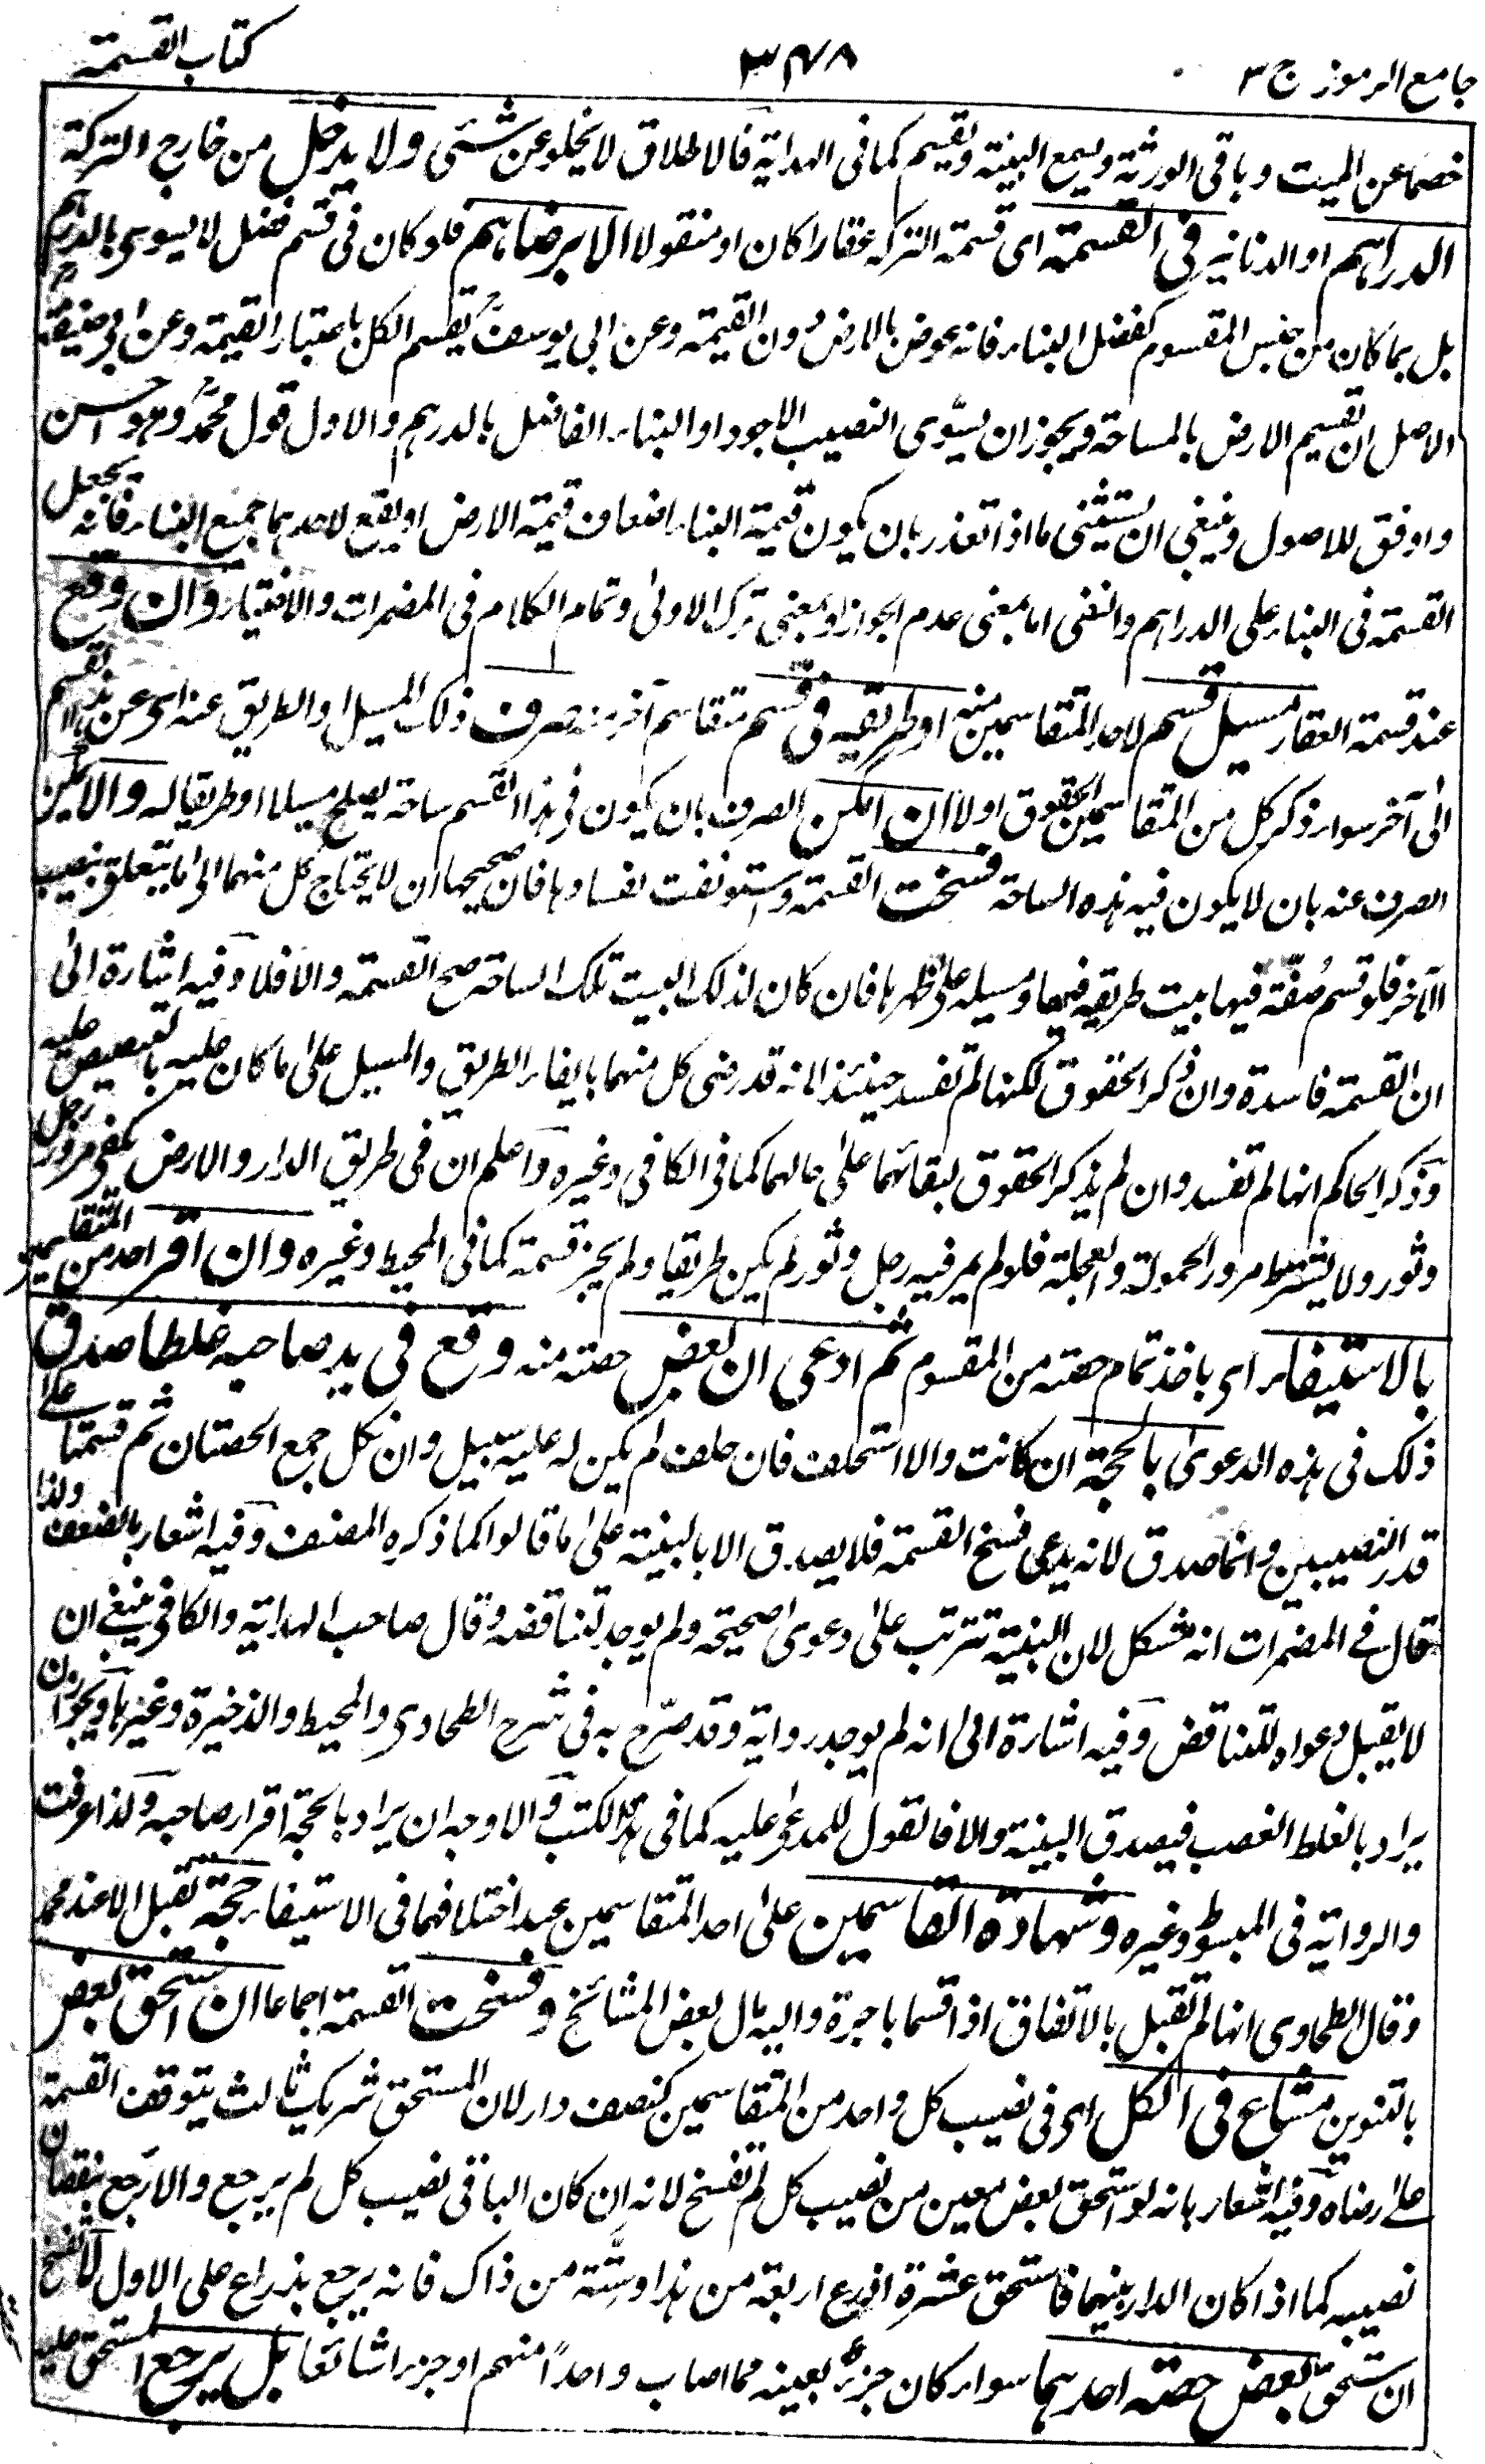 جامع الرموز ج ۳
۳۴۸
کتاب القسمة
خصما عن المیت و باقی الورثة ویسمع البینة وتقسیم کما فی الهدایة فالاطلاق لا یخلو عن شئی ولا یدخل من خارج الترکة
الدراهم او الدنانیر فی القسمة ای قسمة الترکة عقارا کان او منقولا الا برضاهم فلو کان فی قسم فضل لا یسوی بالدراهم
بل بما کان من جنس المقسوم کفضل البناء فانه یعوض بالارض دون القیمة وعن ابی یوسف یقسم الکل باعتبار القیمة وعن ابی حنیفة
الاصل ان تقسیم الارض بالمساحة ویجوز ان یسوّی النصیب الاجود او البناء الفاضل بالدرهم والاول قول محمد وهو احسن
واوفق للاصول وینبغی ان یستثنی ما اذا تعذر بان یکون قیمة البناء اضعاف قیمة الارض او یقع لاحدهما جمیع البناء فانه یجعل
القسمة فی البناء علی الدراهم والنفی اما بمعنی عدم الجواز او بمعنی ترک الاولیٰ وتمام الکلام فی المضمرات والاختیار وان وقع
عند قسمة العقار مسیل قسم لاحد المتقاسمین منه او طریقه فی قسم متقاسم آخر منه صرف ذلک المسیل او الطریق عنه ای عن هذا القسم
الی آخر سواء ذکر کل من المتقاسمین الحقوق اولا ان امکن الصرف بان یکون فی هذا القسم ساحة یصلح مسیلا او طریقا له والا یمکن
الصرف عنه بان لا یکون فیه هذه الساحة فسخت القسمة واستونفت لفسادها فان صحیحها ان لا یحتاج کل منهما الی ما یتعلق بنصیب
الآخر فلو قسم صُفّة فیها بیت طریقه فیها ومسیله علی ظهرها فان کان لذلک البیت تلک الساحة صح القسمة والا فلا وفیه اشارة الی
ان القسمة فاسدة وان ذکر الحقوق لکنها لم تفسد حینئذ لانه قد رضی کل منهما بایفاء الطریق والمسیل علی ما کان علیه بالتنصیص علیه
وذکر الحاکم انها لم تفسد وان لم یذکر الحقوق لبقائهما علی حالهما کما فی الکافی وغیره واعلم ان فی طریق الدار والارض یکفی مرور رجل
وثور ولا یشترط مرور الحمولة والعجلة فلو لم یمر فیه رجل وثور لم یکن طریقا ولم یجز قسمة کما فی المحیط وغیره وان اقر احد من المتقاسمین
بالاستیفاء ای باخذ تمام حصته من المقسوم ثم ادعی ان بعض حصته منه وقع فی ید صاحبه غلطا صدق
ذلک فی هذه الدعوی بالحجة ان کانت والا استحلف فان حلف لم یکن له علیه سبیل وان نکل جمع الحصتان ثم قسمتا علی
قدر النصیبین وانما صدق لانه یدعی فسخ القسمة فلا یصدق الا بالبینة علی ما قالوا کما ذکره المصنف وفیه اشعار بالضعف ولذا
قال فی المضمرات انه مشکل لان البینة تترتب علی دعوی صحیحة ولم یوجد لتناقضه وقال صاحب الهدایة والکافی ینبغی ان
لا یقبل دعواه للتناقض وفیه اشارة الی انه لم یوجد روایة وقد صرّح به فی شرح الطحاوی والمحیط والذخیرة وغیرها ویجوز ان
یراد بالغلط الغصب فیصدق البینة والا فالقول للمدعی علیه کما فی هذه الکتب والاوجه ان یراد بالحجة اقرار صاحبه ولذا عرفت
والروایة فی المبسوط وغیره وشهادة القاسمین علی احد المتقاسمین عند اختلافهما فی الاستیفاء حجة تقبل الا عند محمد
وقال الطحاوی انها لم تقبل بالاتفاق اذا قسما باجرة والیه مال بعض المشائخ وفسخت القسمة اجماعا ان استحق بعض
بالتنوین مشاع فی الکل ای فی نصیب کل واحد من المتقاسمین کنصف دار لان المستحق شریک ثالث یتوقف القسمة
علی رضاه وفیه اشعار بانه لو استحق بعض معین من نصیب کل لم تفسخ لانه ان کان الباقی نصیب کل لم یرجع والا رجع بنقصان
نصیبه کما اذا کان الدار بینهما فاستحق عشرة اذرع اربعة من هذا وستة من ذاک فانه یرجع بذراع علی الاول لا تفسخ
ان استحق بعض حصته احدهما سواء کان جزء بعینه مما اصاب واحداً منهم او جزءا شائعا بل یرجع المستحق علیه